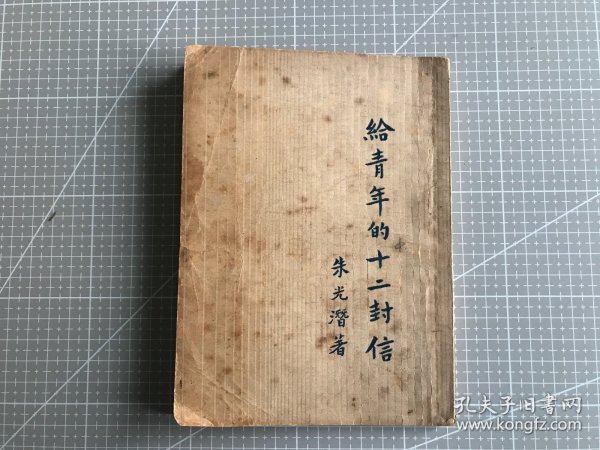 給青年的十二封信
朱光潛著
孔夫子旧書网
www.kongfz.com